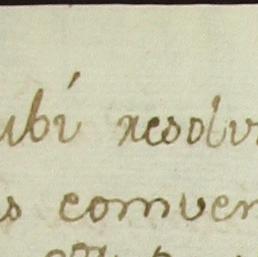 ubi resolv
s comven